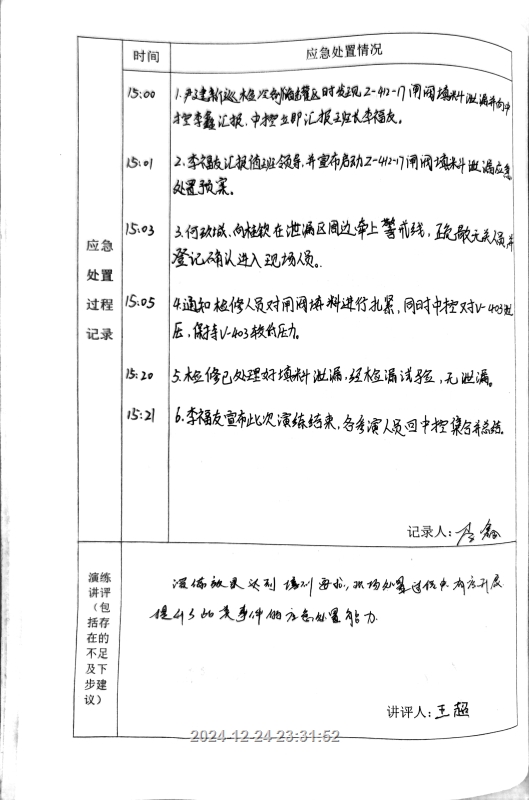 时间
应急处置情况
15:00
1.严建新巡检次制酯罐区时发现Z-412-17闸阀填料泄漏并向中
控李鑫汇报,中控立即汇报班长李福友。
15:01
2.李福友汇报值班领导,并宣布启动Z-412-17闸阀填料泄漏应急
处置预案。
15:03
3.何玖城、向桂钦在泄漏区周边牵上警戒线,疏散无关人员并
登记确认进入现场人员。
应急
处置
过程
记录
15:05
4.通知检修人员对闸阀填料进行扎紧,同时中控对V-403泄
压,保持V-403较低压力。
15:20
5.检修已处理好填料泄漏,经检漏试验,无泄漏。
15:21
6.李福友宣布此次演练结束,各参演人员回中控集合并总结。
记录人:李鑫
演练
讲评
(包
括存
在的
不足
及下
步建
议)
演练效果达到 要求,现场处置过程中有序开展
提升了 事件的应急处置能力.
讲评人:王超
2024-12-24 23:31:52